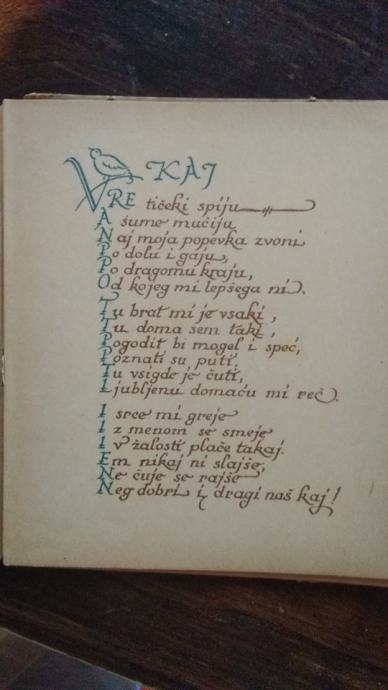 KAJ
VRE tičeki spiju
A šume mučiju
Naj moja popevka zvoni
Po dolu i gaju,
Po dragomu kraju,
Od kojeg mi lepšega ni.
Tu brat mi je vsaki,
Tu doma sem taki,
Pogodit bi mogel i speč,
Poznati su puti,
Tu vsigde je čuti,
Ljubljenu domaću mi reč.
I srce mi greje
I z menom se smeje
I v žalosti plače takaj.
Em nikaj ni slajše,
Ne čuje se rajše
Neg dobri i dragi naš kaj!